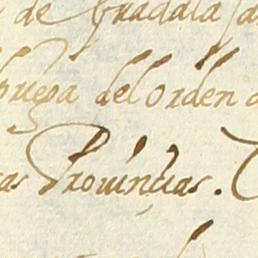 de Guadala
del orden
as Prouincias.